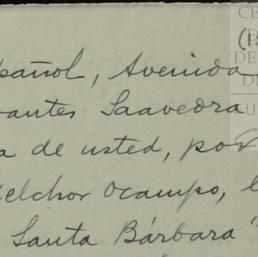 pañol, Avenida
antes Saavedra
a de usted, por
elchor Ocampo,
Santa Bárbara"